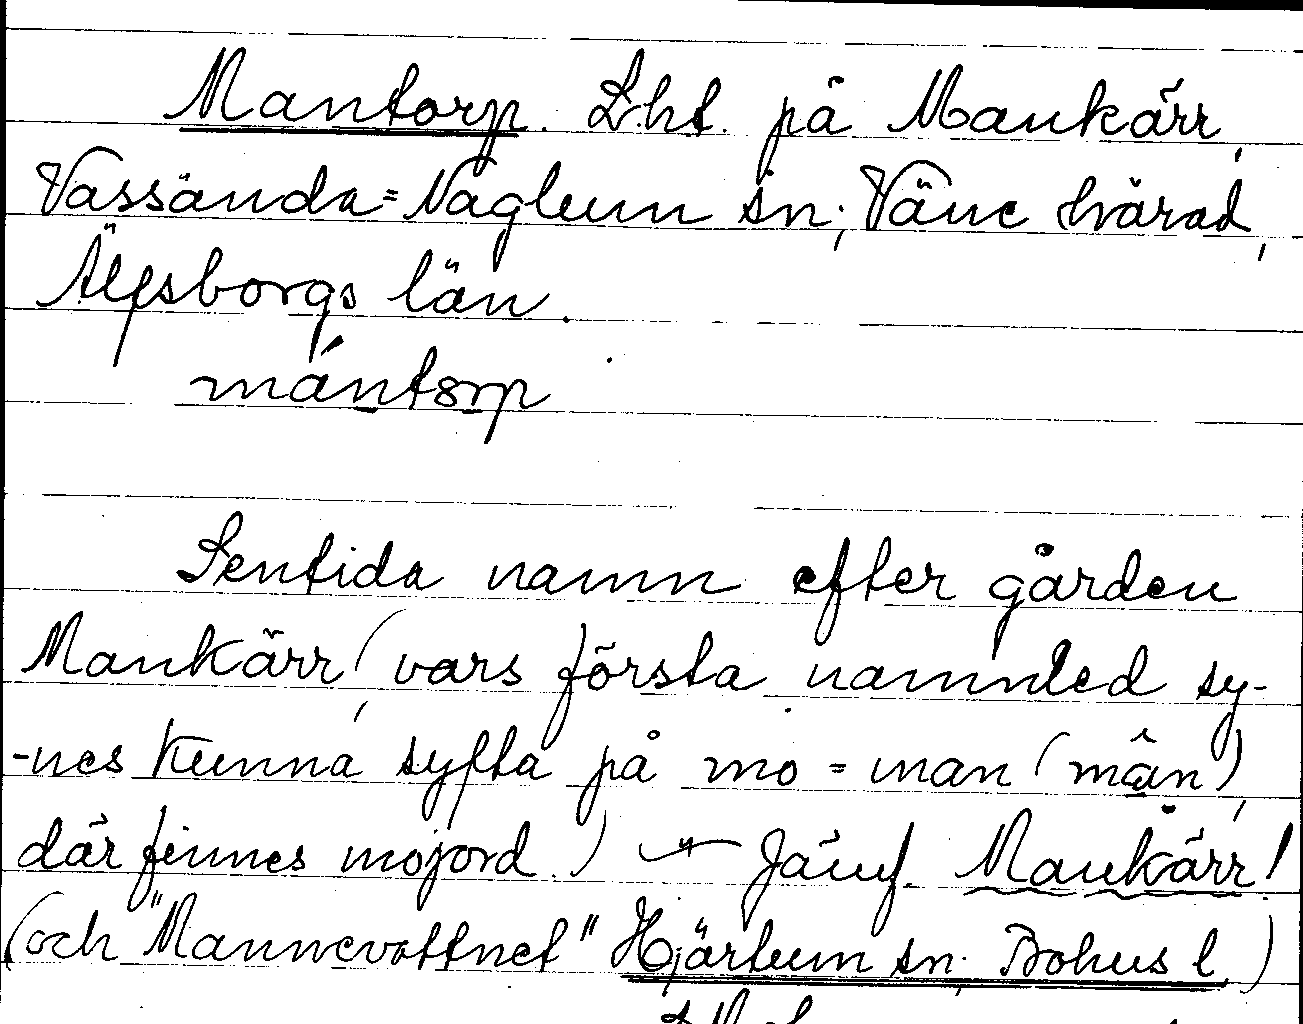 Mantorp. Lht. på Mankärr,
Vassända=Naglum sn; Väne härad,
Älfsborgs län.
mántorp
Sentida namn efter gården
Mankärr (vars första namnled sy-
-nes kunna syfta på mo = man (mân),
där finnes mojord.) — Jämf. Mankärr!
(och "Mannevattnet" Hjärtum sn; Bohus l.)